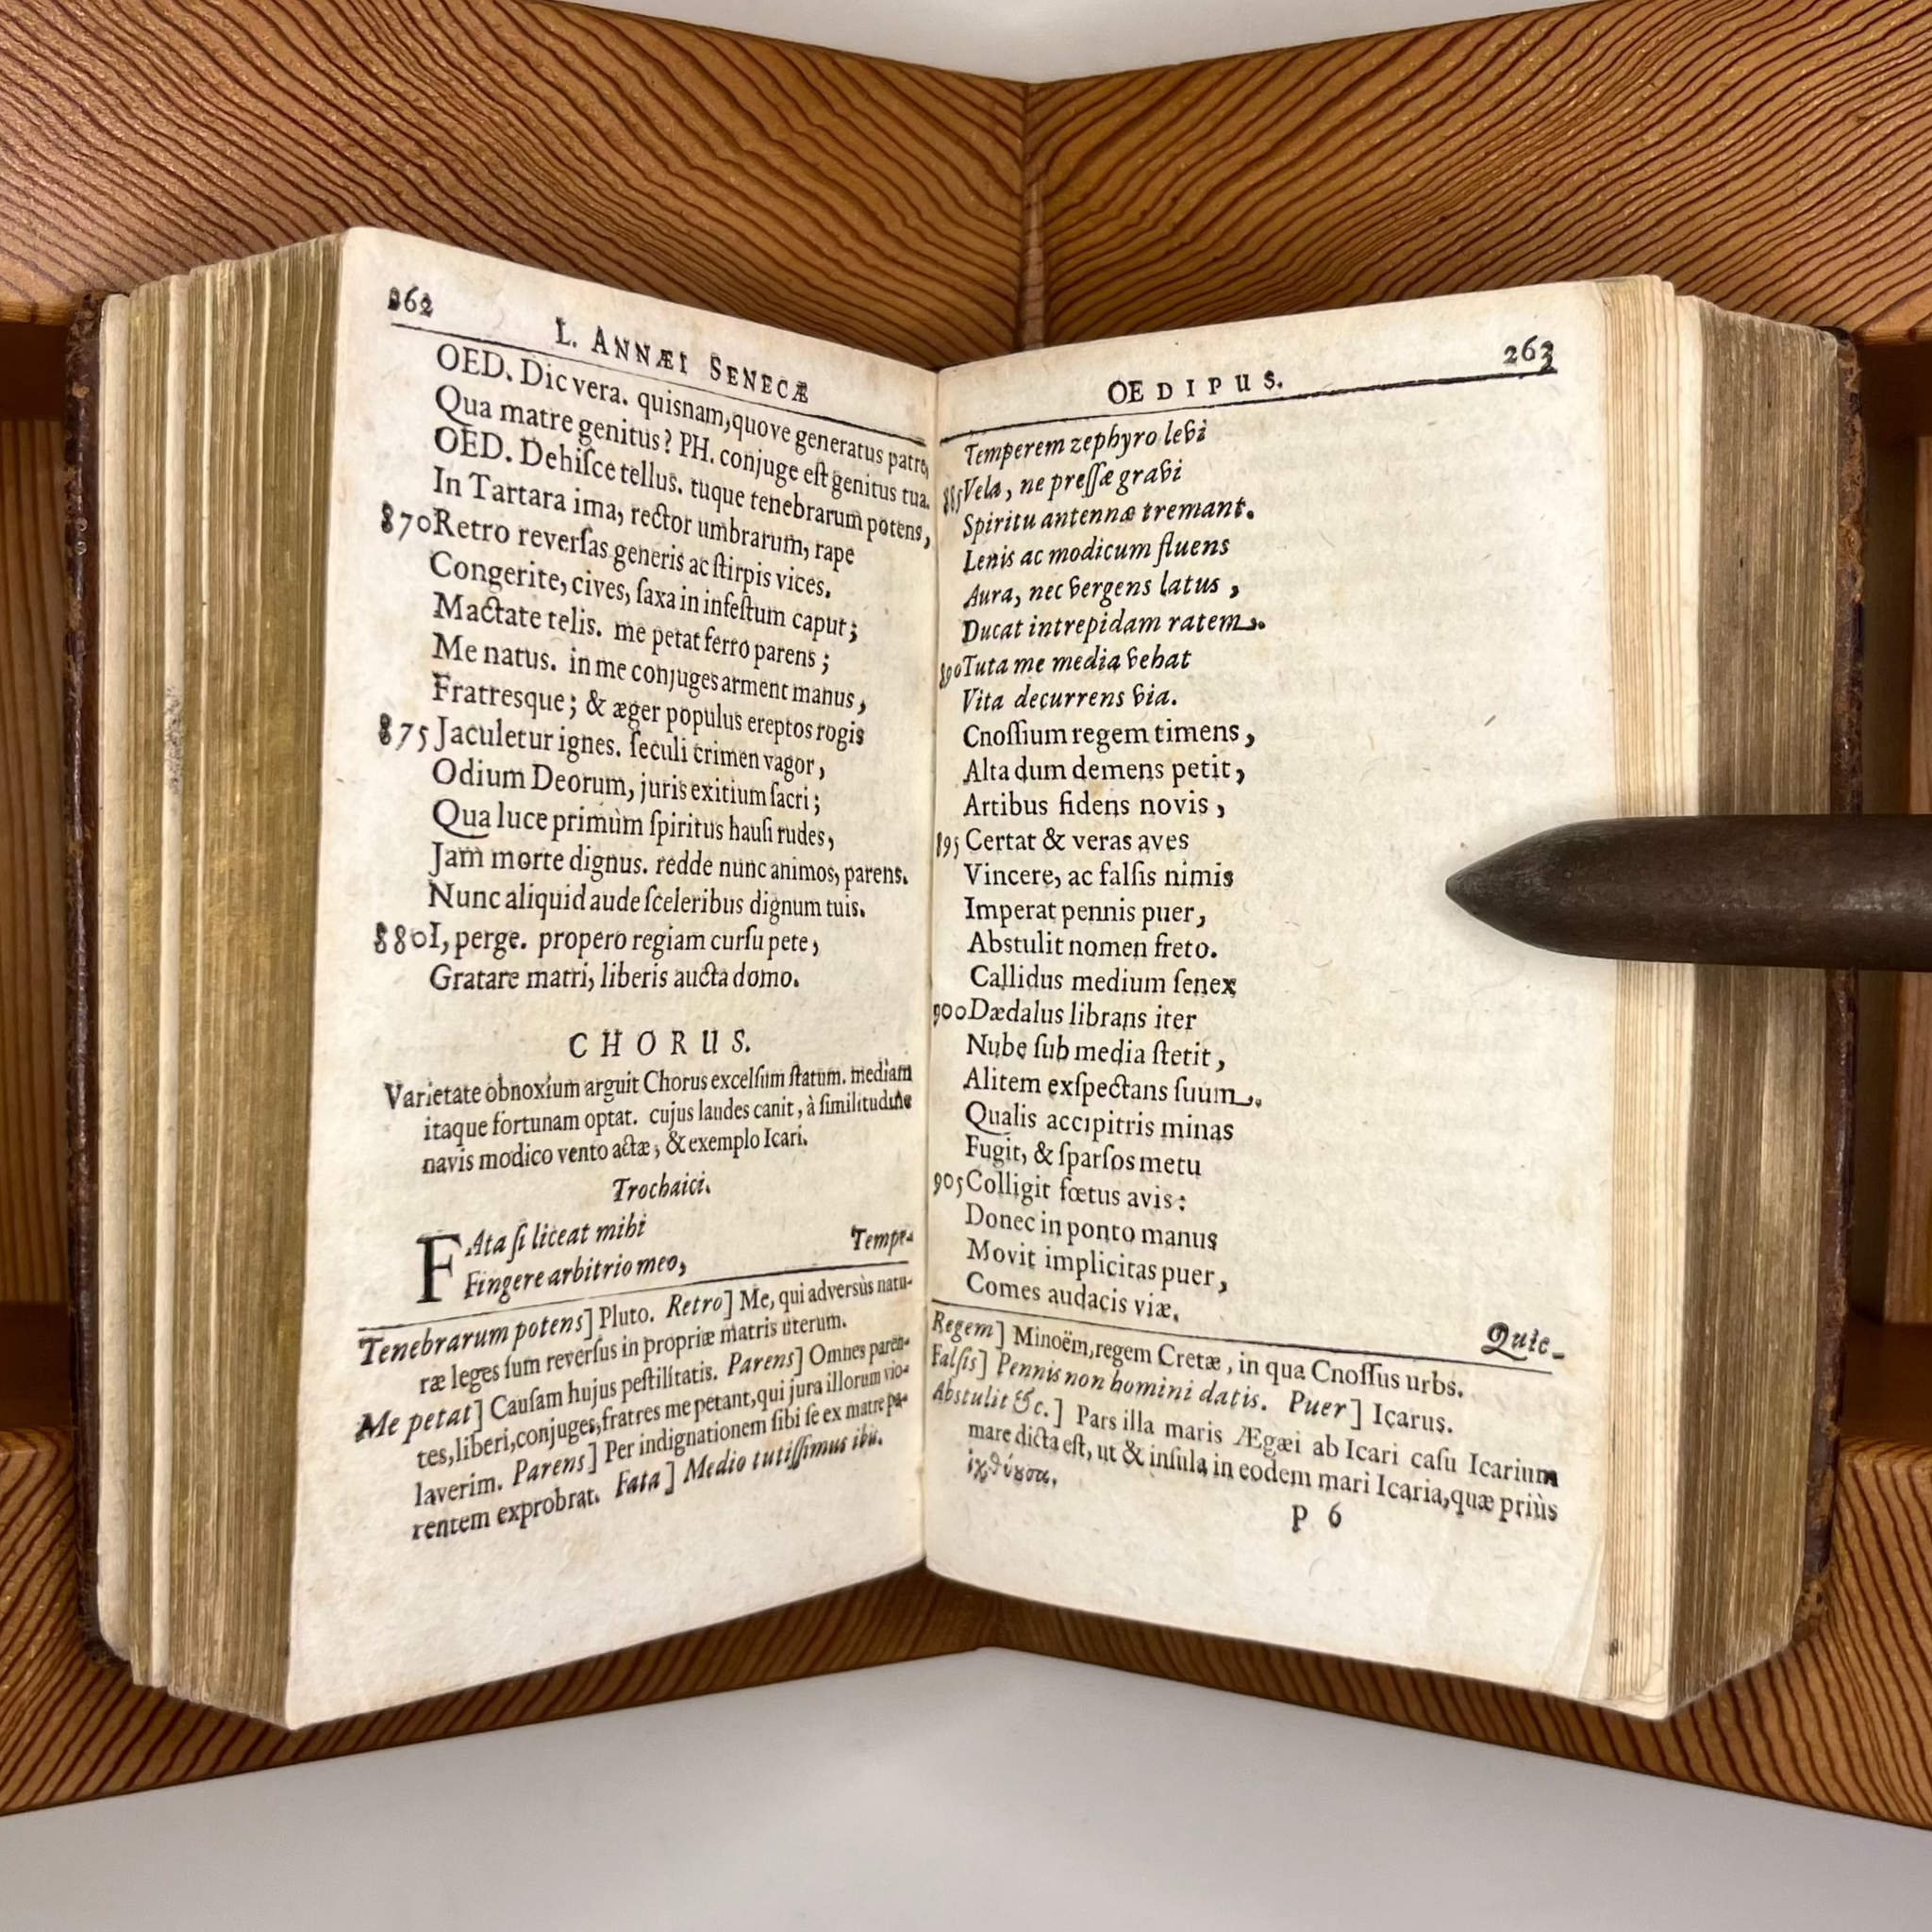 262
L. ANNÆI SENECÆ
OED. Dic vera. quisnam, quove generatus patre,
Qua matre genitus? PH. conjuge eſt genitus tua.
OED. Dehiſce tellus. tuque tenebrarum potens,
In Tartara ima, rector umbrarum, rape
870 Retro reverſas generis ac ſtirpis vices.
Congerite, cives, ſaxa in infeſtum caput;
Mactate telis. me petat ferro parens;
Me natus. in me conjuges arment manus,
Fratresque; & æger populus ereptos rogis
875 Jaculetur ignes. ſeculi crimen vagor,
Odium Deorum, juris exitium ſacri;
Qua luce primùm ſpiritus hauſi rudes,
Jam morte dignus. redde nunc animos, parens.
Nunc aliquid aude ſceleribus dignum tuis.
880 I, perge. propero regiam curſu pete,
Gratare matri, liberis aucta domo.
CHORUS.
Varietate obnoxium arguit Chorus excelſum ſtatum. mediam
itaque fortunam optat. cujus laudes canit, à ſimilitudine
navis modico vento actæ, & exemplo Icari.
Trochaici.
FAta ſi liceat mihi
Fingere arbitrio meo,
Tempe-
Tenebrarum potens] Pluto. Retro] Me, qui adversùs natu-
ræ leges ſum reverſus in propriæ matris uterum.
Me petat] Cauſam hujus peſtilitatis. Parens] Omnes paren-
tes, liberi, conjuges, fratres me petant, qui jura illorum vio-
laverim. Parens] Per indignationem ſibi ſe ex matre pa-
rentem exprobrat. Fata] Medio tutiſſimus ibis.
OEDIPUS.
263
Temperem zephyro levi
885 Vela, ne preſſæ gravi
Spiritu antennæ tremant.
Lenis ac modicum fluens
Aura, nec vergens latus,
Ducat intrepidam ratem.
890 Tuta me media vehat
Vita decurrens via.
Cnoſſium regem timens,
Alta dum demens petit,
Artibus fidens novis,
895 Certat & veras aves
Vincere, ac falſis nimis
Imperat pennis puer,
Abstulit nomen freto.
Callidus medium ſenex
900 Dædalus librans iter
Nube ſub media ſtetit,
Alitem exſpectans ſuum.
Qualis accipitris minas
Fugit, & ſparſos metu
905 Colligit fœtus avis:
Donec in ponto manus
Movit implicitas puer,
Comes audacis viæ.
Quic-
Regem] Minoëm, regem Cretæ, in qua Cnoſſus urbs.
Falſis] Pennis non homini datis. Puer] Icarus.
Abstulit &c.] Pars illa maris Ægæi ab Icari caſu Icarium
mare dicta eſt, ut & inſula in eodem mari Icaria, quæ priùs
ἰχθύουσα.
P 6